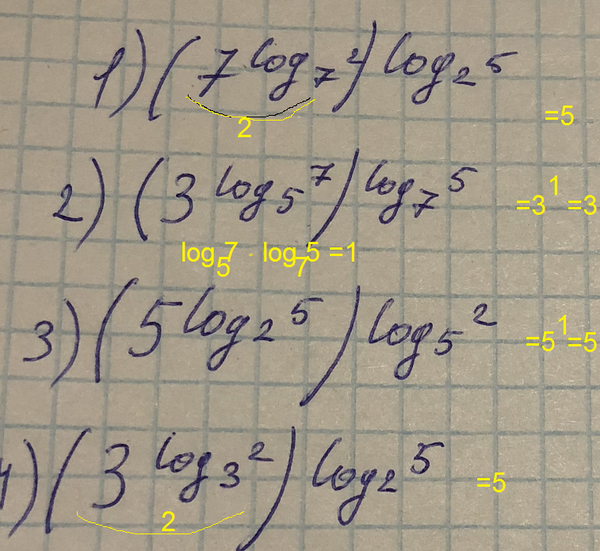 1) (7^{log_7 2})^{log_2 5} =5
2
2) (3^{log_5 7})^{log_7 5} =3^1=3
log_5 7 · log_7 5 =1
3) (5^{log_2 5})^{log_5 2} =5^1=5
4) (3^{log_3 2})^{log_2 5} =5
2